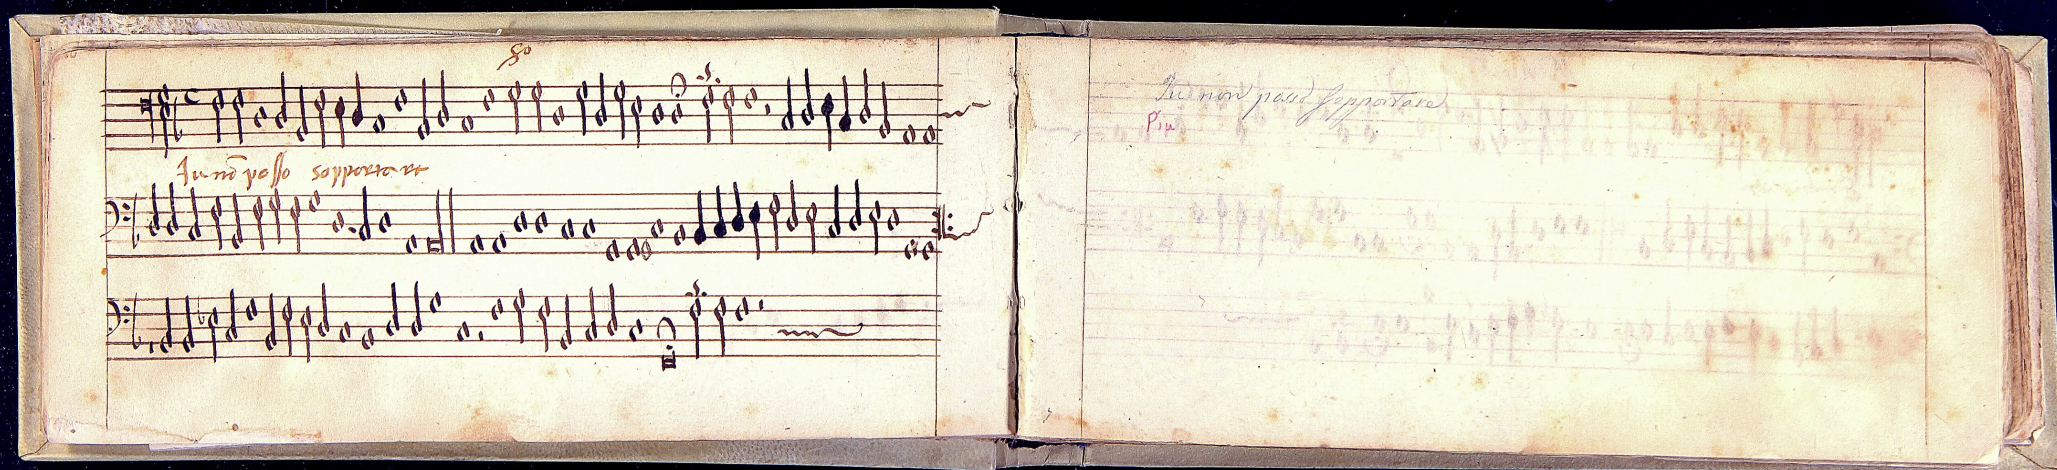 Iu nō posso sopportare
Iu non posso sopportare
Piu